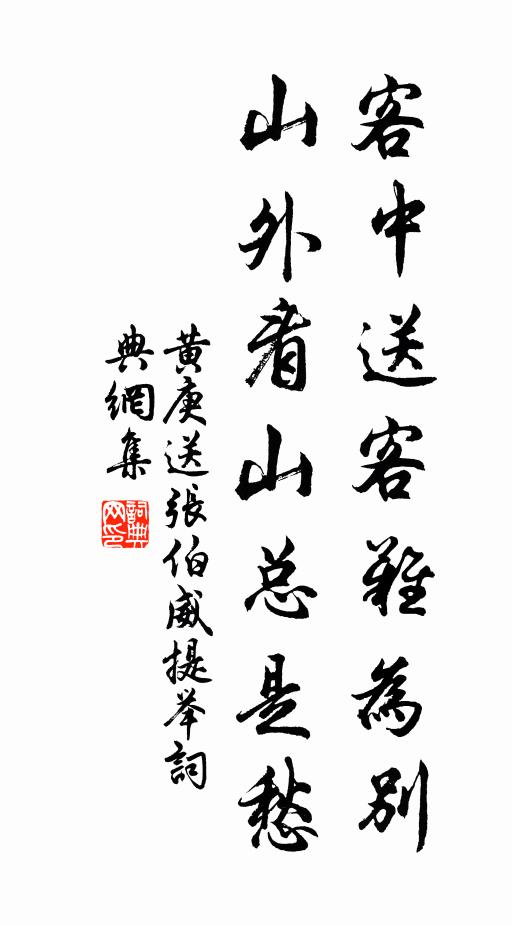 客中送客難為別
山外看山总是愁
黄庚送張伯威提举詞
典網集
詞典网印